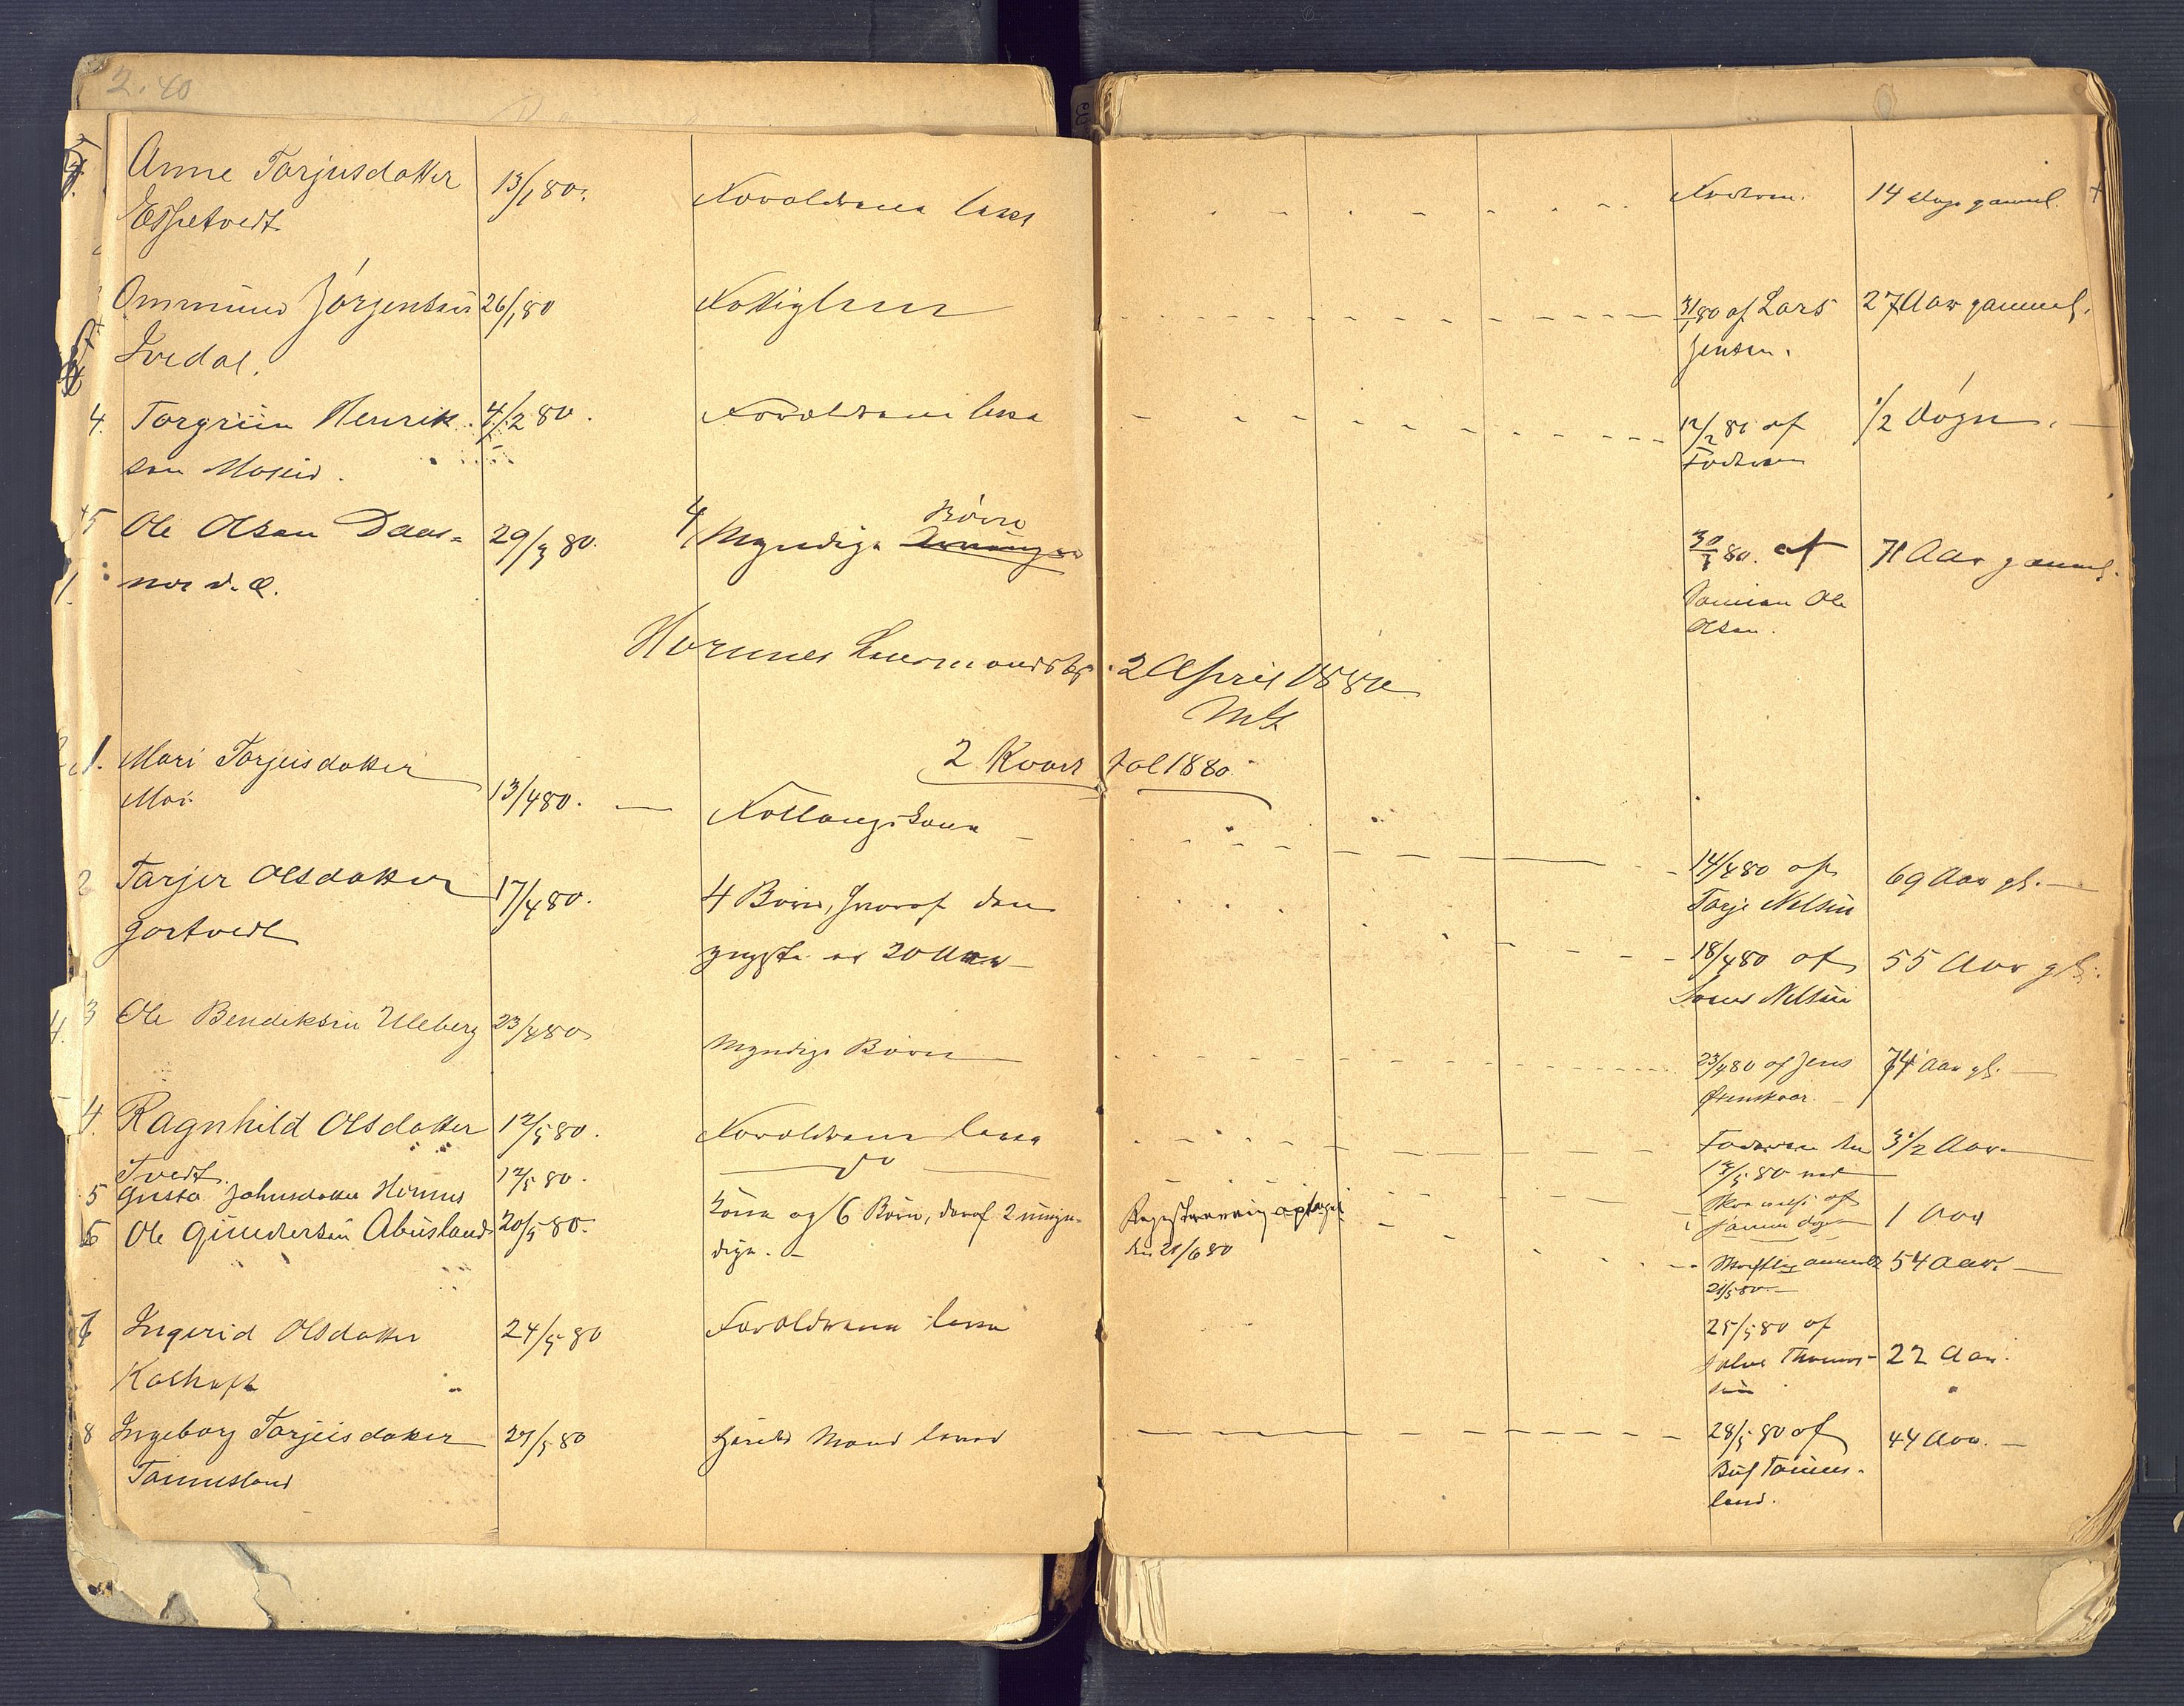 2.40
Anne Torjusdatter 13/1 80. Foroldrene leve Faderen. 14 dage gammel.
Espetvedt
Ommund Jörgensen 26/1 80 Fattiglem 31/1 80 af Lars 27 Aar gammel.
Ivedal. Jensen.
4. Torgrim Henrik- 4/2 80. Foroldrene leve 12/2 80 af 1/2 Dögn.
sen Moseid. Faderen
5 Ole Olsen Daas- 29/3 80. 4 Myndige Börn 30/3 80. af 71 Aar gammel.
nes d. æ. Sönnen Ole
Olsen.
Hornnes Lensmandsbg. 2 April 1880
2 Kvartal 1880.
1. Mari Torjusdatter
Moi 13/4 80. Föllaugskone 14/4 80 af 69 Aar gl.
Torje Nilsen
2 Torjer Olsdatter 17/4 80. 4 Börn, hvoraf den 18/4 80 af 55 Aar gl.
Gortvedt yngste er 20 Aar Nilsen
3 Ole Bendiksen Uleberg 23/4 80 Myndige Börn 23/4 80 af Jens 74 Aar gl.
4. Ragnhild Olsdatter 12/5 80. Foroldrene leve Faderen den 3 1/2 Aar
Tvedt. 13/5 80
5 Gusta Johnsdatter Hornnes 12/5 80. do af 1 Aar
samme dag
6 Ole Gundersen Abusland 20/5 80. Kone og 6 Börn, deraf 2 umyn- Registrering optaget Skriftlig anmeldt 54 Aar.
dige. den 21/6 80 21/5 80
7 Ingerid Olsdatter 24/5 80 Foroldrene leve 25/5 80 af 22 Aar.
Kallhaft Thomas-
sen
8 Ingeborg Torjusdatter 27/5 80 Hendes Mand lever 28/5 80 af 44 Aar.
Tonnesland Tonnes-
land.